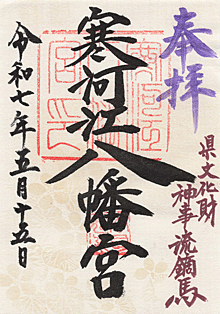 奉拝
県文化財
神事 流鏑馬
寒河江八幡宮
令和七年五月十五日